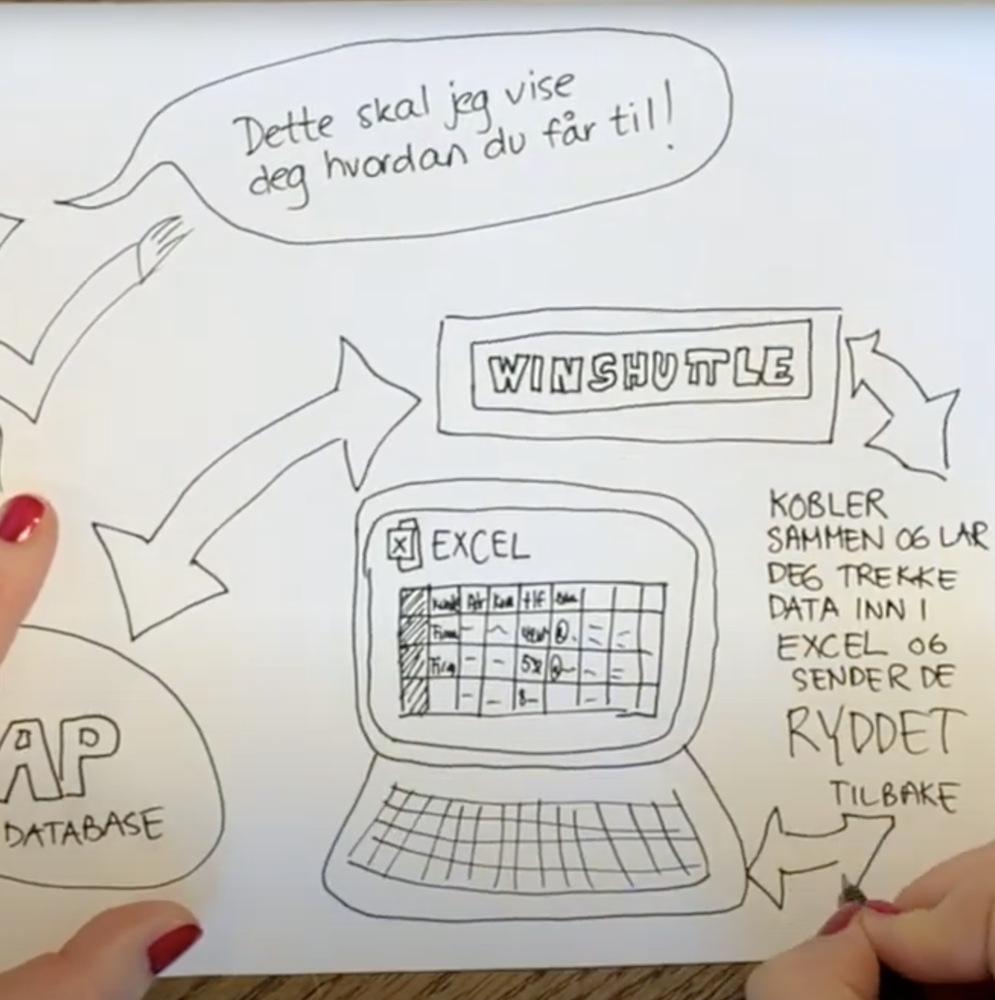 Dette skal jeg vise
deg hvordan du får til!
WINSHUTTLE
X EXCEL
tlf
KOBLER
SAMMEN OG LAR
DEG TREKKE
DATA INN I
EXCEL OG
SENDER DE
RYDDET
TILBAKE
AP
DATABASE